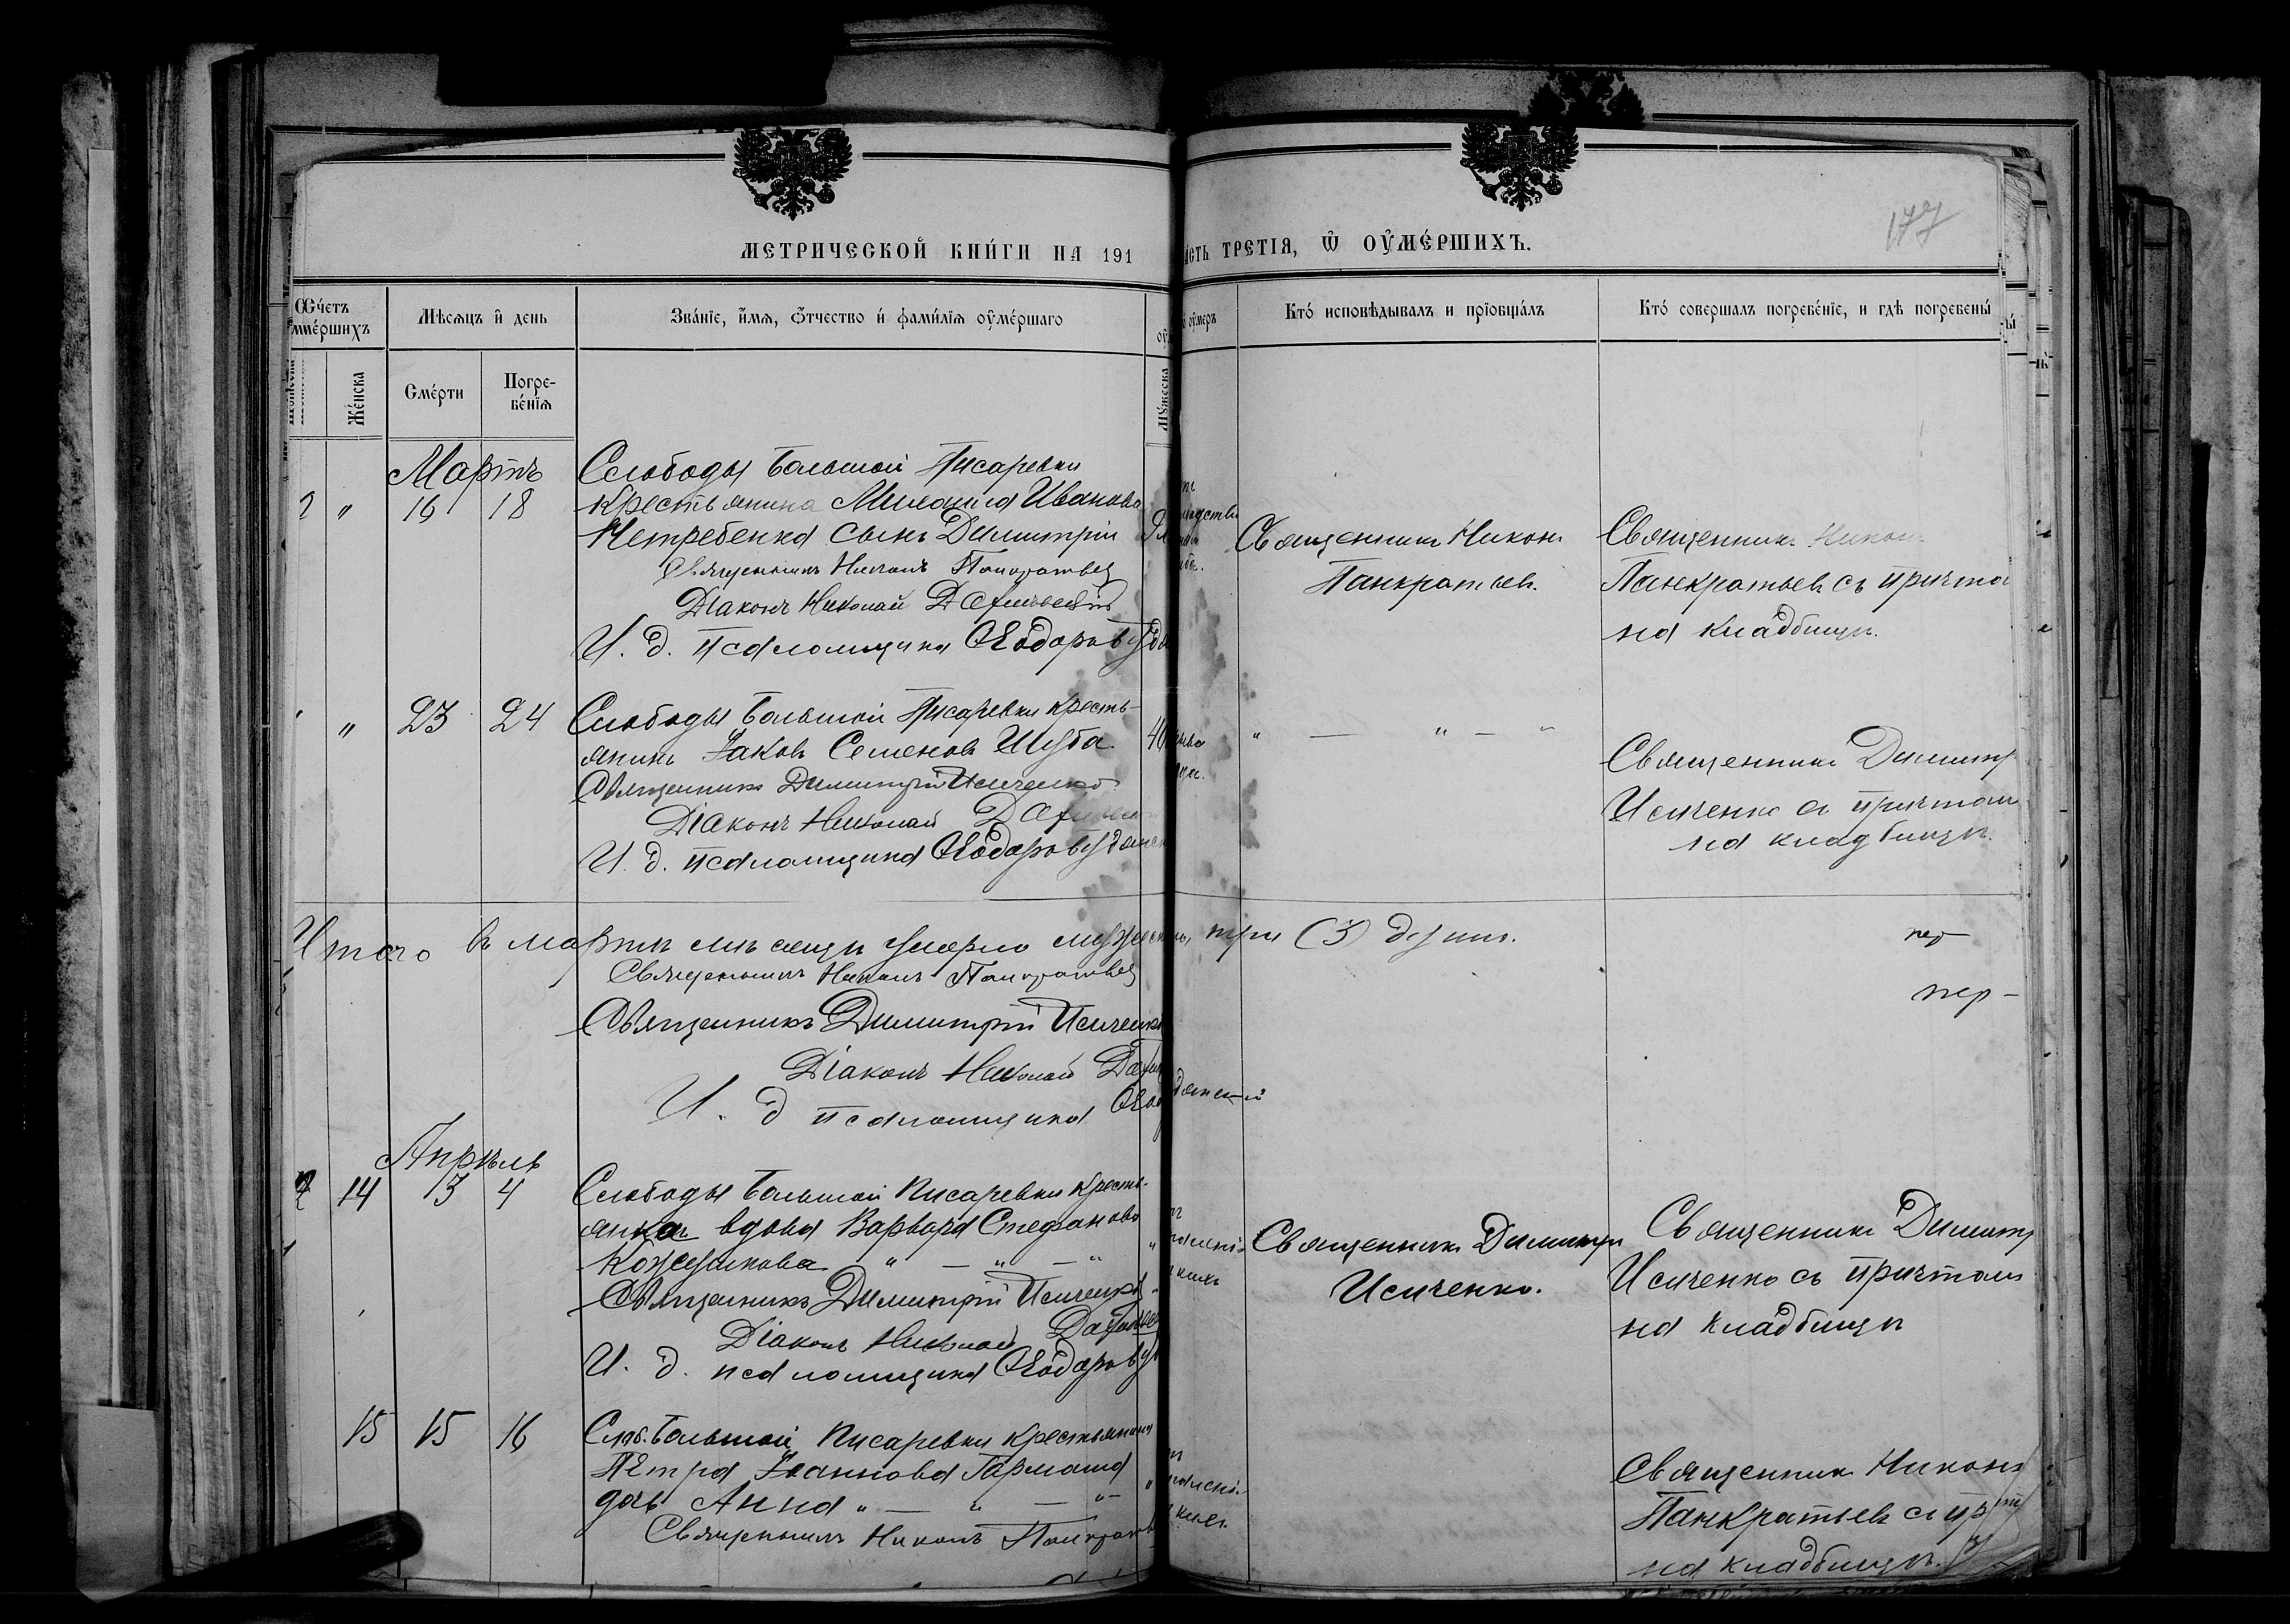 177
МЕТРИЧЕСКОЙ КНИГИ НА 191
ТРЕТІЯ, Ѿ ОУМЕРШИХЪ.
Счетъ
Мѣсяцъ и день
Званіе, имя, отчество и фамилія оумершаго
Кто исповѣдывалъ и пріобщалъ
Кто совершалъ погребеніе, и гдѣ погребены
Женска
Смерти
Погре-
бенія
Мартъ
Слободы Большой Писаревки
2 " 16 18 крестьянина Михаила Иванова
Нетребенка сынъ Димитрій
Священникъ Никонъ Панкратьевъ
Діаконъ Николай
И. д. псаломщика Ѳеодоръ
Священникъ Никон
Панкратьевъ.
Священникъ Никон
Панкратьевъ съ причто
на кладбищѣ.
" 23 24 Слободы Большой Писаревки кресть-
янинъ Іаковъ Семеновъ Шуба.
Священникъ Димитрій Исиченко
Діаконъ Николай
И. д. псаломщика Ѳеодоръ
" — " — "
Священникъ Димитр
Исиченко съ причтом
на кладбищѣ.
Итого въ мартѣ мѣсяцѣ умерло три (3) души.
Священникъ Никонъ Панкратьевъ
Священникъ Димитрій Исиченко
Діаконъ Николай
И. д. псаломщика
Апрѣль
14 13 4 Слободы Большой Писаревки кресть-
янка вдова Варвара Стефанова
Кожушкова " — " — "
Священникъ Димитрій Исиченко
Діаконъ Николай
И. д. псаломщика Ѳеодоръ
Священникъ Димитрій
Исиченко.
Священникъ Димитр
Исиченко съ причтом
на кладбищѣ
15 15 16 Слоб. Большой Писаревки крестьянина
Петра Іоаннова Гармаша
дочь Анна " — " — "
Священникъ Никонъ Панкратьев
Священникъ Никонъ
Панкратьевъ съ пр
на кладбищѣ.